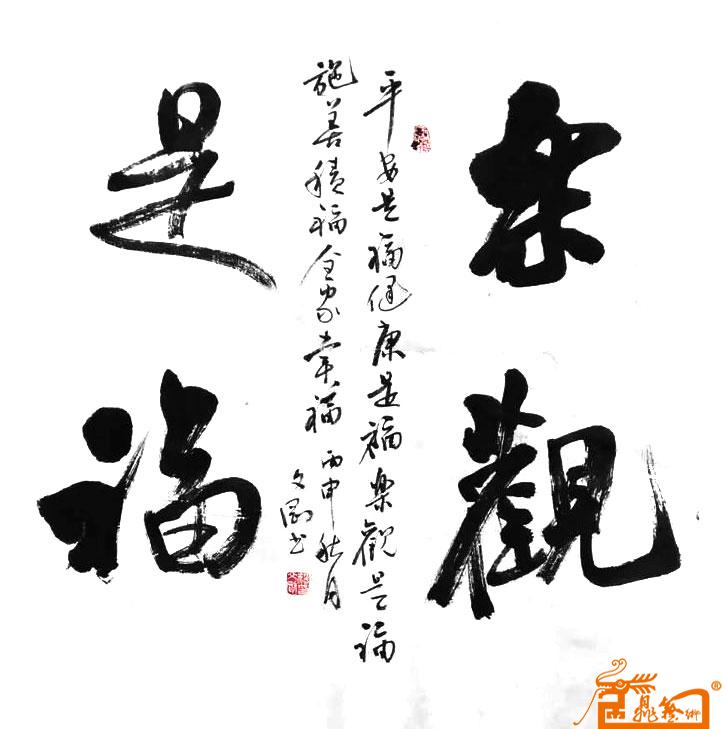 樂觀
是福
平安是福健康是福樂觀是福
施善積福全家幸福丙申秋月
文剛書